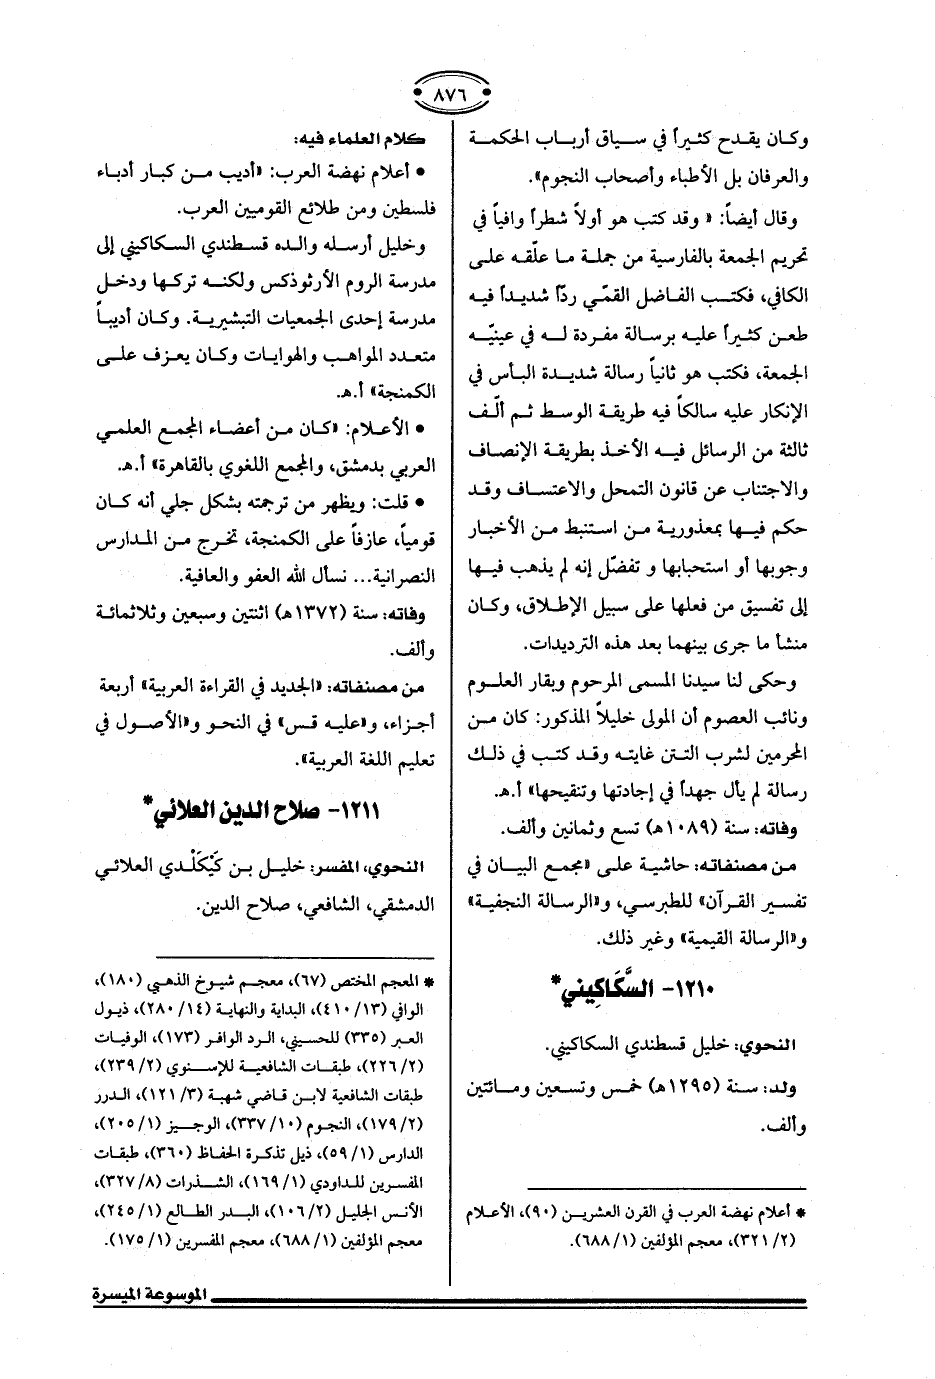 ٨٧٦
وكان يقدح كثيراً في سياق أرباب الحكمة
والعرفان بل الأطباء وأصحاب النجوم».
وقال أيضاً: « وقد كتب هو أولاً شطراً وافياً في
تحريم الجمعة بالفارسية من جملة ما علّقه على
الكافي، فكتب الفاضل القمّي ردّاً شديداً فيه
طعن كثيراً عليه برسالة مفردة له في عينيّه
الجمعة، فكتب هو ثانياً رسالة شديدة البأس في
الإنكار عليه سالكاً فيه طريقة الوسط ثم ألّف
ثالثة من الرسائل فيه الأخذ بطريقة الإنصاف
والاجتناب عن قانون التمحل والاعتساف وقد
حكم فيها بمعذورية من استنبط من الأخبار
وجوبها أو استحبابها و تفضّل إنه لم يذهب فيها
إلى تفسيق من فعلها على سبيل الإطلاق، وكان
منشأ ما جرى بينهما بعد هذه الترديدات.
وحكى لنا سيدنا المسمى المرحوم وبقار العلوم
ونائب العصوم أن المولى خليلاً المذكور: كان من
المحرمين لشرب التتن غايته وقد كتب في ذلك
رسالة لم يأل جهداً في إجادتها وتنقيحها» أ.هـ.
وفاته: سنة (١٠٨٩هـ) تسع وثمانين وألف.
من مصنفاته: حاشية على «مجمع البيان في
تفسير القرآن» للطبرسي، و«الرسالة النجفية»
و«الرسالة القيمية» وغير ذلك.
١٢١٠- السَّكَاكِيني*
النحوي: خليل قسطندي السكاكيني.
ولد: سنة (١٢٩٥هـ) خمس وتسعين ومائتين
وألف.
* أعلام نهضة العرب في القرن العشرين (٩٠)، الأعلام
(٢/ ٣٢١)، معجم المؤلفين (١/ ٦٨٨).
كلام العلماء فيه:
• أعلام نهضة العرب: «أديب من كبار أدباء
فلسطين ومن طلائع القوميين العرب.
وخليل أرسله والده قسطندي السكاكيني إلى
مدرسة الروم الأرثوذكس ولكنه تركها ودخل
مدرسة إحدى الجمعيات التبشيرية. وكان أديباً
متعدد المواهب والهوايات وكان يعزف على
الكمنجة» أ.هـ.
• الأعلام: «كان من أعضاء المجمع العلمي
العربي بدمشق، والمجمع اللغوي بالقاهرة» أ.هـ.
• قلت: ويظهر من ترجمته بشكل جلي أنه كان
قومياً، عازفاً على الكمنجة، تخرج من المدارس
النصرانية... نسأل الله العفو والعافية.
وفاته: سنة (١٣٧٢هـ) اثنتين وسبعين وثلاثمائة
وألف.
من مصنفاته: «الجديد في القراءة العربية» أربعة
أجزاء، و«عليه قس» في النحو و«الأصول في
تعليم اللغة العربية».
١٢١١- صلاح الدين العلائي*
النحوي، المفسر: خليل بن كَيْكَلْدي العلائي
الدمشقي، الشافعي، صلاح الدين.
* المعجم المختص (٦٧)، معجم شيوخ الذهبي (١٨٠)،
الوافي (١٣/ ٤١٠)، البداية والنهاية (١٤/ ٢٨٠)، ذيول
العبر (٣٣٥) للحسيني، الرد الوافر (١٧٣)، الوفيات
(٢/ ٢٢٦)، طبقات الشافعية للإسنوي (٢/ ٢٣٩)،
طبقات الشافعية لابن قاضي شهبة (٣/ ١٢١)، الدرر
(٢/ ١٧٩)، النجوم (١٠/ ٣٣٧)، الوجيز (١/ ٢٠٥)،
الدارس (١/ ٥٩)، ذيل تذكرة الحفاظ (٣٦٠)، طبقات
المفسرين للداودي (١/ ١٦٩)، الشذرات (٨/ ٣٢٧)،
الأنس الجليل (٢/ ١٠٦)، البدر الطالع (١/ ٢٤٥)،
معجم المؤلفين (١/ ٦٨٨)، معجم المفسرين (١/ ١٧٥).
الموسوعة الميسرة